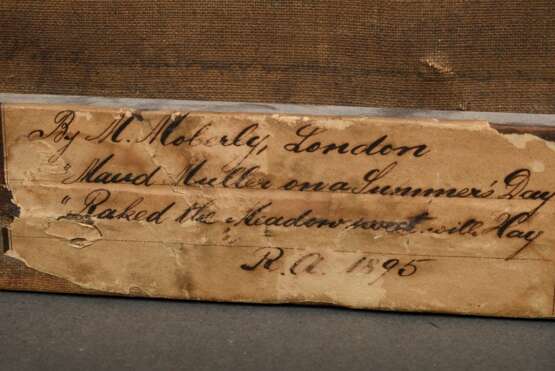 By M. Moberly, London
"Maud Muller on a Summer's Day
"Raked the Meadow sweet with Hay
R.A. 1895